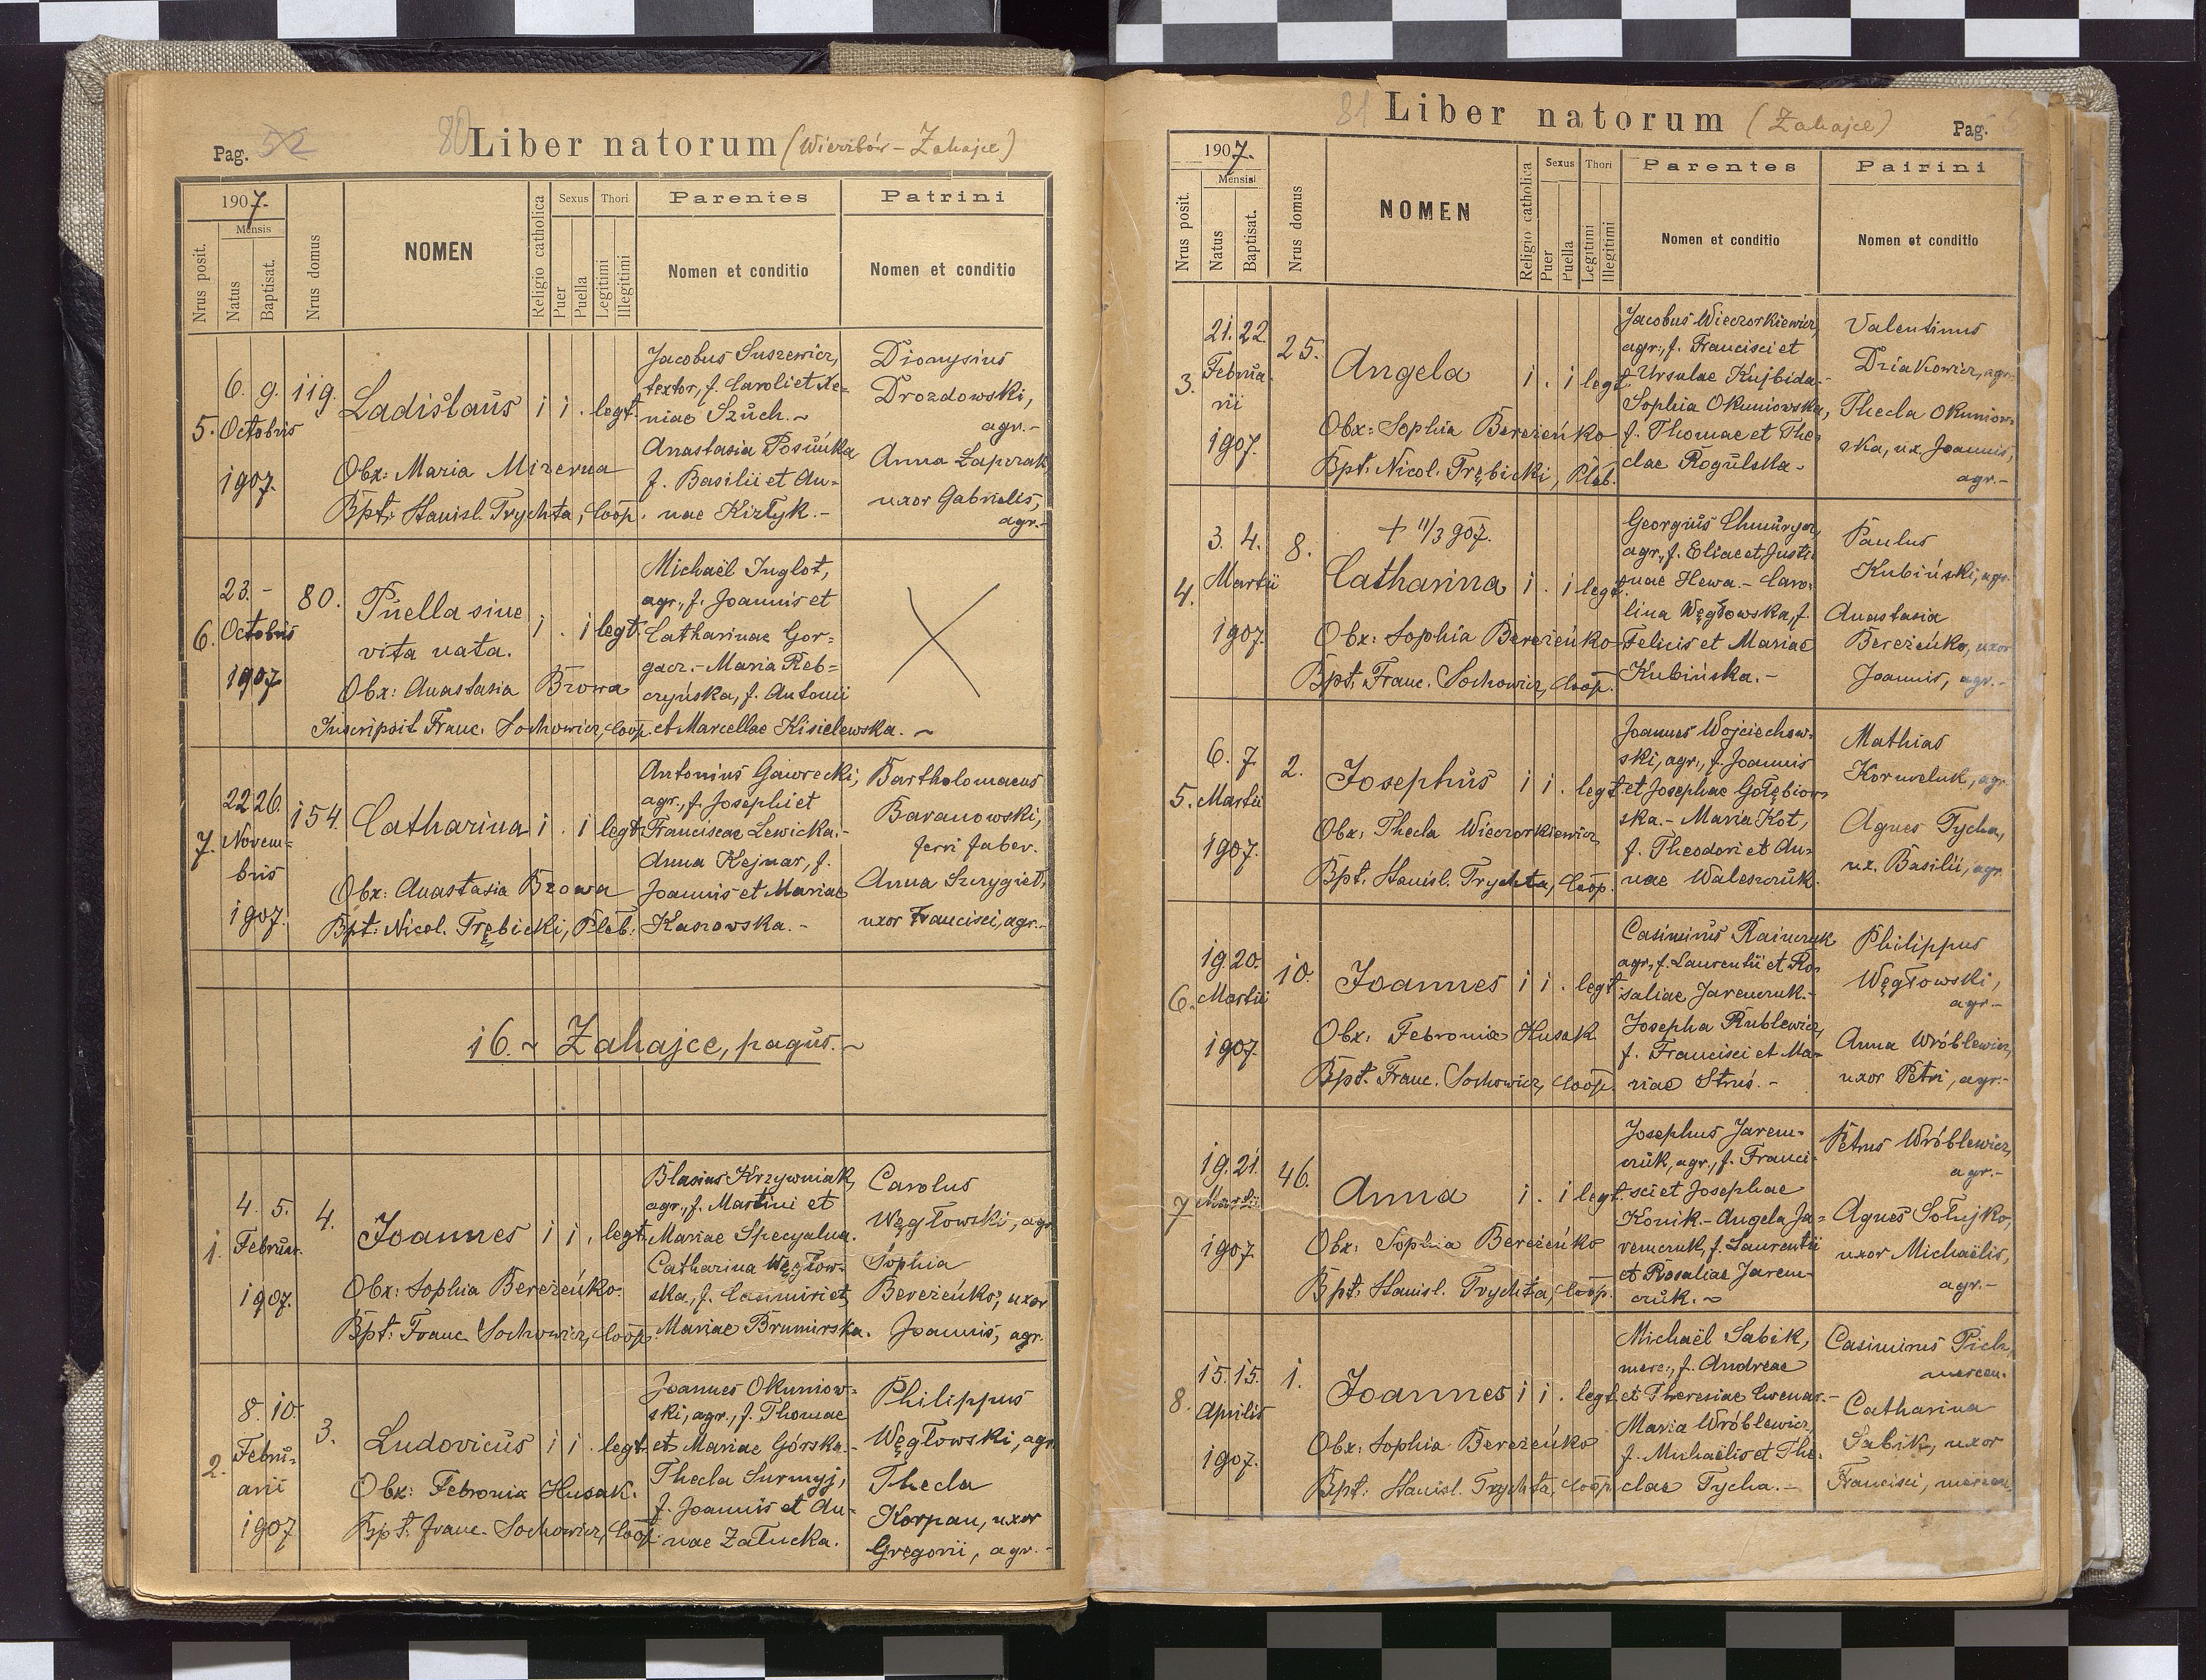 Pag. 52
80 Liber natorum (Wierzbów - Zahajce)
1907.
Mensis
Nrus posit.
Natus
Baptisat.
Nrus domus
NOMEN
Religio catholica
Sexus
Puer
Puella
Thori
Legitimi
Illegitimi
Parentes
Nomen et conditio
Patrini
Nomen et conditio
5.
6. 9.
Octobris
1907.
119.
Ladislaus
i i . legt.
Obx: Maria Mizerna
Bpt: Stanisl. Trychta, Coop.
Jacobus Suszewicz,
textor, f. Caroli et Xe=
niae Szuch. ~
Anastasia Posuńka
f. Basilii et An=
nae Kiztyk. -
Dionysius
Drozdowski,
agr. -
Anna Łapczak
uxor Gabrielis,
agr. -
6.
23. -
Octobris
1907
80.
Puella sine
vita nata.
i . i legt.
Obx: Anastasia Bzowa
Inscripsit Franc. Sochowicz, Coop.
Michaël Inglot,
agr., f. Joannis et
Catharinae Gor=
gacz. - Maria Reb=
czyńska, f. Antonii
et Marcellae Kisielewska. ~
7.
22 26.
Novem=
bris
1907.
154.
Catharina
i . i legt.
Obx: Anastasia Bzowa
Bpt: Nicol. Trębicki, Pleb.
Antonius Gawrecki,
agr., f. Josephi et
Franciscae Lewicka. -
Anna Kejnar, f.
Joannis et Mariae
Kaszowska. -
Bartholomaeus
Baranowski,
ferri faber.
Anna Szczygieł,
uxor Francisci, agr. -
16. ~ Zahajce, pagus. ~
1.
4. 5.
Februar.
1907.
4.
Joannes
i i . legt.
Obx: Sophia Bereżeńko.
Bpt: Franc. Sochowicz, Coop.
Blasius Krzywniak,
agr., f. Martini et
Mariae Specyalna.
Catharina Węgłow=
ska, f. Casimiri et
Mariae Brumirska.
Carolus
Węgłowski, agr.
Sophia
Bereżeńko, uxor
Joannis, agr.
2.
8. 10.
Febru=
arii
1907
3.
Ludovicus
i i . legt.
Obx: Febronia Husak.
Bpt: Franc. Sochowicz, Coop.
Joannes Okuniow=
ski, agr., f. Thomae
et Mariae Górska. -
Thecla Surmyj,
f. Joannis et An=
nae Załucka.
Philippus
Węgłowski, agr.
Thecla
Korpan, uxor
Gregorii, agr. -
81 Liber natorum (Zahajce)
Pag.
1907.
Mensis
Nrus posit.
Natus
Baptisat.
Nrus domus
NOMEN
Religio catholica
Sexus
Puer
Puella
Thori
Legitimi
Illegitimi
Parentes
Nomen et conditio
Pairini
Nomen et conditio
3.
21. 22.
Februa=
rii
1907.
25.
Angela
i . i legt.
Obx: Sophia Bereżeńko
Bpt. Nicol. Trębicki, Pleb.
Jacobus Wieczorkiewicz,
agr., f. Francisci et
Ursulae Kujbida. -
Sophia Okuniowska,
f. Thomae et The=
clae Rogulska -
Valentinus
Dziakowicz, agr.
Thecla Okuniow=
ska, ux. Joannis,
agr. -
4.
3. 4.
Martii
1907.
8.
+ 11/3 907.
Catharina
i . i legt.
Obx: Sophia Bereżeńko
Bpt. Franc. Sochowicz, Coop.
Georgius Chmurycz,
agr., f. Eliae et Justi=
nae Hewa. - Caro=
lina Węgłowska, f.
Felicis et Mariae
Kubińska. -
Paulus
Kubiński, agr.
Anastasia
Bereżeńko, uxor
Joannis, agr. -
5.
6. 7.
Martii
1907.
2.
Josephus
i i . legt.
Obx: Thecla Wieczorkiewicz
Bpt. Stanisl. Trychta, Coop.
Joannes Wojciechow=
ski, agr., f. Joannis
et Josephae Gołębiow=
ska. - Maria Kot,
f. Theodori et An=
nae Waleszczuk.
Mathias
Korneluk, agr.
Agnes Tycha,
ux. Basilii, agr.
6.
19. 20.
Martii
1907.
10.
Joannes
i i . legt.
Obx. Febronia Husak
Bpt. Franc. Sochowicz, Coop.
Casimirus Rainczuk
agr., f. Laurentii et Ro=
saliae Jaremczuk. -
Josepha Rublewicz,
f. Francisci et Ma=
riae Struś. -
Philippus
Węgłowski,
agr. -
Anna Wróblewicz,
uxor Petri, agr. -
7
19. 21.
Martii
1907.
46.
Anna
i . i legt.
Obx: Sophia Bereżeńko
Bpt. Stanisl. Trychta, Coop.
Josephus Jarem=
czuk, agr., f. Franci=
sci et Josephae
Konik. - Angela Ja=
remczuk, f. Laurentii
et Rosaliae Jarem=
czuk. ~
Petrus Wróblewicz,
agr. -
Agnes Sołujko,
uxor Michaëlis,
agr. -
8.
15. 15.
Aprilis
1907.
1.
Joannes
i i . legt.
Obx: Sophia Bereżeńko
Bpt: Stanisl. Trychta, Coop.
Michaël Sabik,
merc., f. Andreae
et Theresiae Cwenar. -
Maria Wróblewicz,
f. Michaëlis et The=
clae Tycha. -
Casimirus Pich,
mercen.
Catharina
Sabik, uxor
Francisci, mercen.